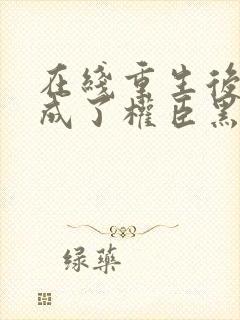 在綫重生後
成了權臣黑
绿藥